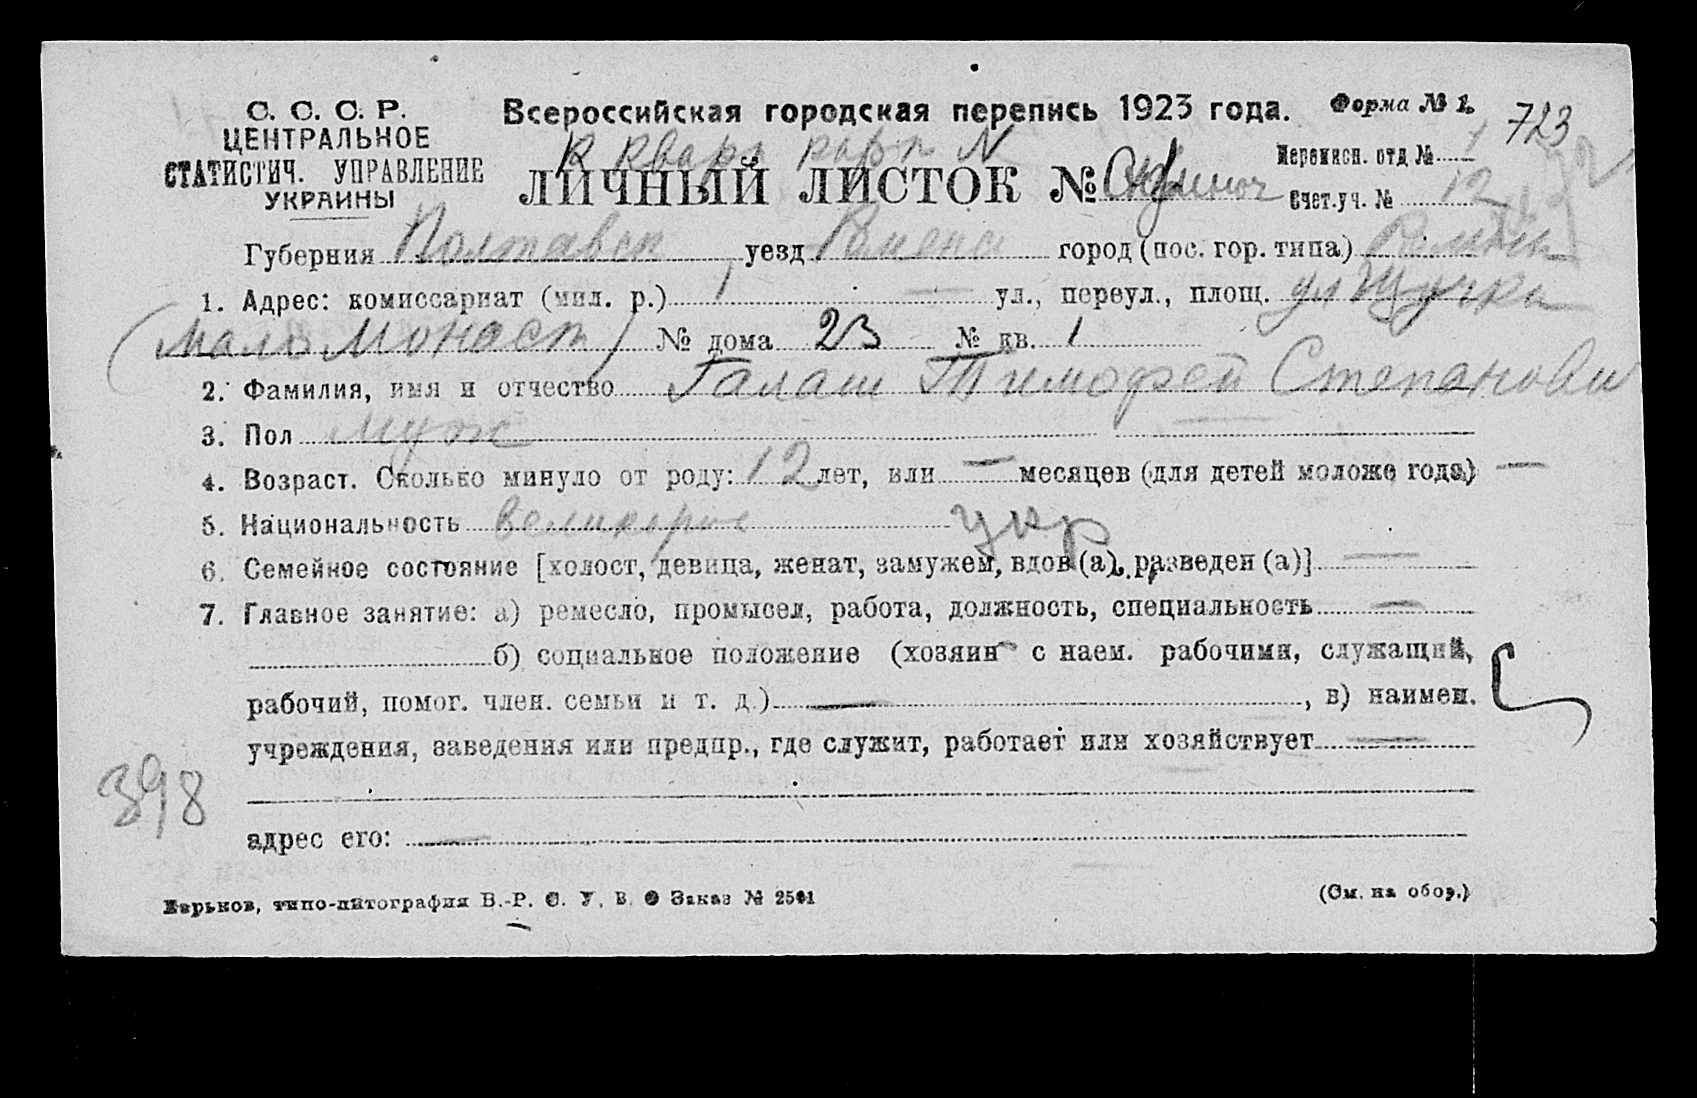 С. С. С. Р.
ЦЕНТРАЛЬНОЕ
СТАТИСТИЧ. УПРАВЛЕНИЕ
УКРАИНЫ
Всероссийская городская перепись 1923 года.
Форма № 1.
723
К кварт карт N
ЛИЧНЫЙ ЛИСТОК №
Переписн. отд № 1
Счет.уч. № 12
Губерния Полтавск уезд Роменс город (пос. гор. типа) Ромны
1. Адрес: комиссариат (мил. р.) 1 ул., переул., площ. ул Щучки
(Мало Монаст) № дома 23 № кв. 1
2. Фамилия, имя и отчество Галаш Тимофей Степанови
3. Пол муж
4. Возраст. Сколько минуло от роду: 12 лет, или — месяцев (для детей моложе года) —
5. Национальность великорос укр
6. Семейное состояние [холост, девица, женат, замужем, вдов (а), разведен (а)] —
7. Главное занятие: а) ремесло, промысел, работа, должность, специальность —
б) социальное положение (хозяин с наем. рабочими, служащий,
рабочий, помог. член. семьи и т. д.) — , в) наимен.
учреждения, заведения или предпр., где служит, работает или хозяйствует —
398
адрес его: —
Харьков, типо-литография В.-Р. С. У. В. О Заказ № 2501
(См. на обор.)